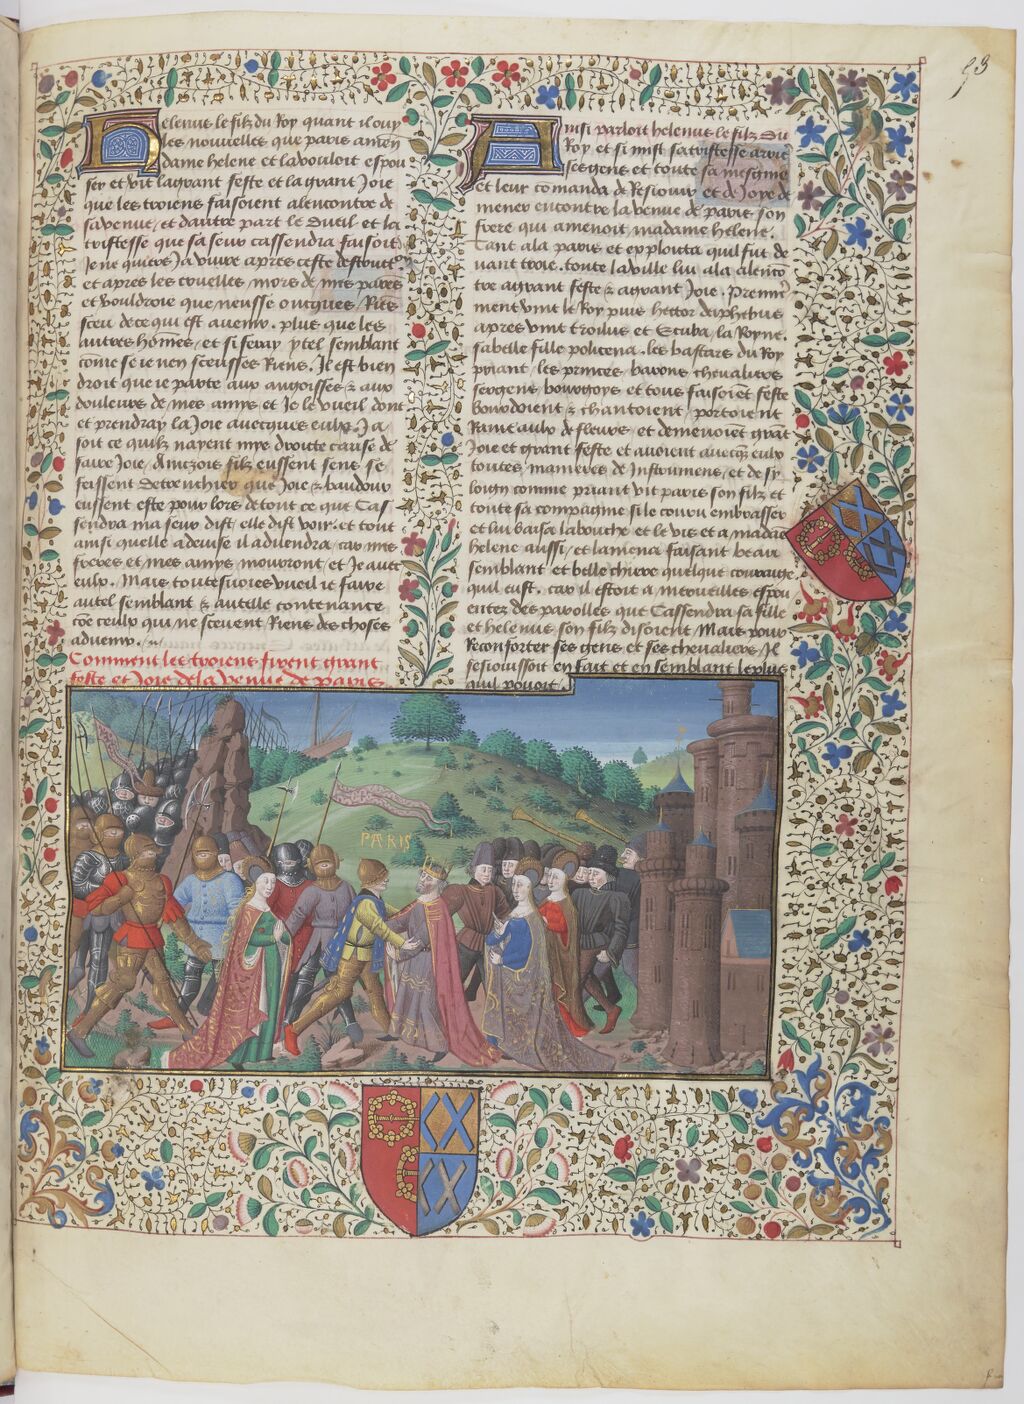 53
Helenus le filz du Roy quant il ouy
les nouvelles que paris amen
dame helene et la vouloit espou
ser et vit la grant feste et la grant Joie
que les troiens faisoient alencontre de
sa venue, et dautre part le dueil et la
tristesse que sa seur cassendra faisoit
Je ne quier Ja vivre apres ceste
et apres les mors de mes
et vouldroie que neusse oncques Riens
sceu de ce qui est avenir. plus que les
autres homes, et si feray ytel semblant
come se ie nen sceusses Riens. Il est bien
droit que ie parte aux angoisses & aux
douleurs de mes amys et Je le vueil dont
et prendray la Joie avecques eulx. Ja
soit ce quilz nayent mye droite cause de
faire Joie. Ainczois silz eussent sens se
feissent detrenchier que Joie & baudour
eussent este pour lors de tout ce que Cas
sendra ma seur dist, elle dist voir. et tout
ainsi quelle a devise il advendra, car mes
freres et mes amys mourront, et Je avec
eulx. Mais toutesvoies vueil ie faire
autel semblant & autelle contenance
cõe ceulx qui ne scevent Riens des choses
advenir.
Comment les troiens firent grant
feste et Joie de la venue de paris
Ainsi parloit helenus le filz du
Roy et si mist sa tristesse
ses gens et toute sa mesgnie
et leur comanda de Resiouir et de Joye de
mener encontre la venue de paris son
frere qui amenoit madame helene.
Tant ala paris et exploicta quil fut de
vant troie. toute la ville lui ala alenco
tre a grant feste & a grant Joie.
ment vint le Roy puis hector
apres vint troilus et Ecuba, la Royne.
sa belle fille policena. les bastars du Roy
priant, les princes barons chevaliers
sergens, bourgoys et tous faisoiẽt feste
& chantoient, portoient
Rains aulx de fleurs, et demenoiẽt grãt
Joie et grant feste et avoient avecq̃s eulx
toutes manieres de Instrumens, et de sy
loing comme priant vit paris son filz et
toute sa compagnie si le couru embrasser
et lui baisa la bouche et le vis et a madãe
helene aussi, et lamena faisant beau
semblant et belle chiere quelque courage
quil eust. car il estoit a merveilles espou
entez des parolles que Cassendra sa fille
et helenus son filz disoient. Mais pour
Reconforter ses gens et ses chevaliers, Il
sesiouissoit en fait et en semblant le plus
quil povoit.
PARIS